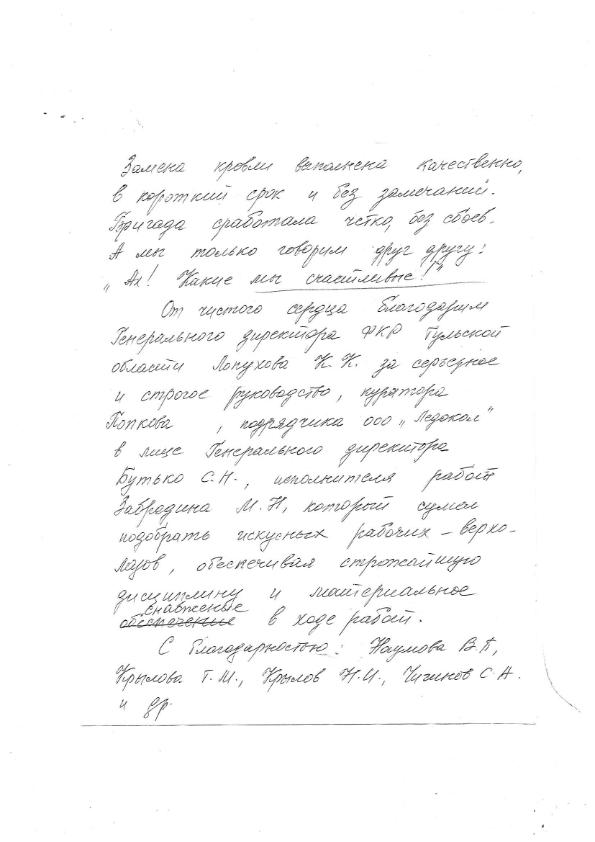 Замена кровли выполнена качественно,
в короткий срок и без замечаний.
Бригада сработала чётко, без сбоев.
А мы только говорим друг другу:
„Ах! Какие мы счастливые!"
От чистого сердца благодарим
Генерального директора ФКР Тульской
области Лопухова К. К. за серьёзное
и строгое руководство, куратора
Попкова , подрядчика ООО „Ледокол"
в лице Генерального директора
Бутько С.Н., исполнителя работ
Забродина М.Н, который сумел
подобрать искусных рабочих – верхо-
лазов, обеспечивая строжайшую
дисциплину и материальное
снабжение
обеспечение в ходе работ.
С благодарностью: Наумова В.П,
Крылова Т.М., Крылов Н.И., Чигинов С.А.
и др.